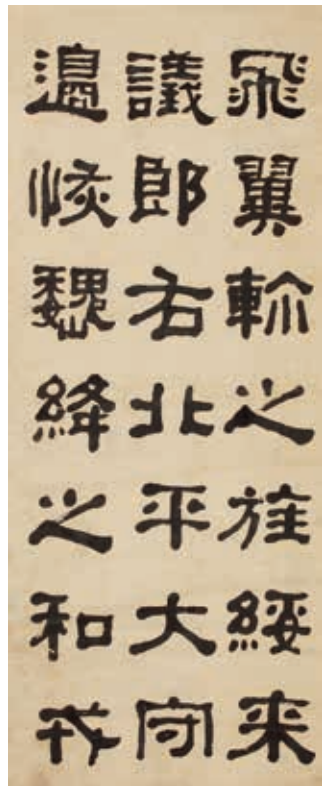 飛翼軫之旌綏来
議郎右北平大守
邊恢魏絳之和戎